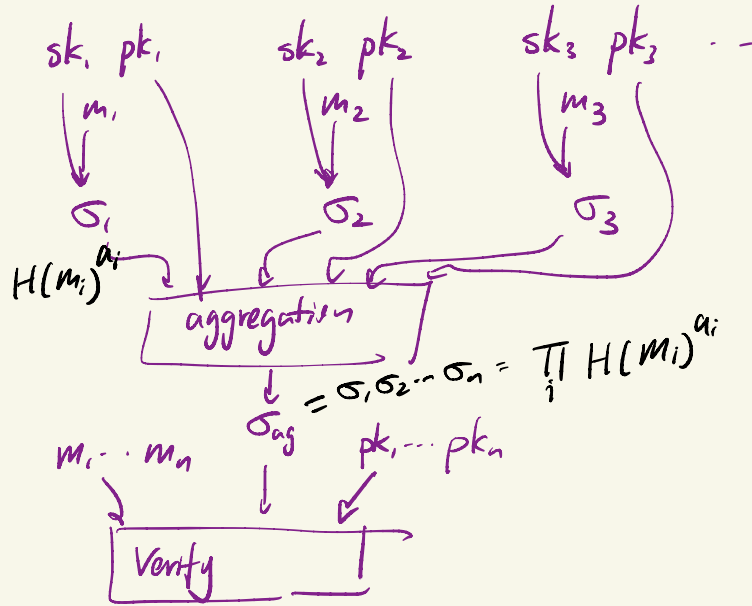 sk₁ pk₁ sk₂ pk₂ sk₃ pk₃ ...
m₁ m₂ m₃
σ₁ σ₂ σ₃
H(mᵢ)^aᵢ
aggregation
σ_ag = σ₁σ₂...σₙ = ∏ᵢ H(mᵢ)^aᵢ
m₁...mₙ pk₁...pkₙ
Verify